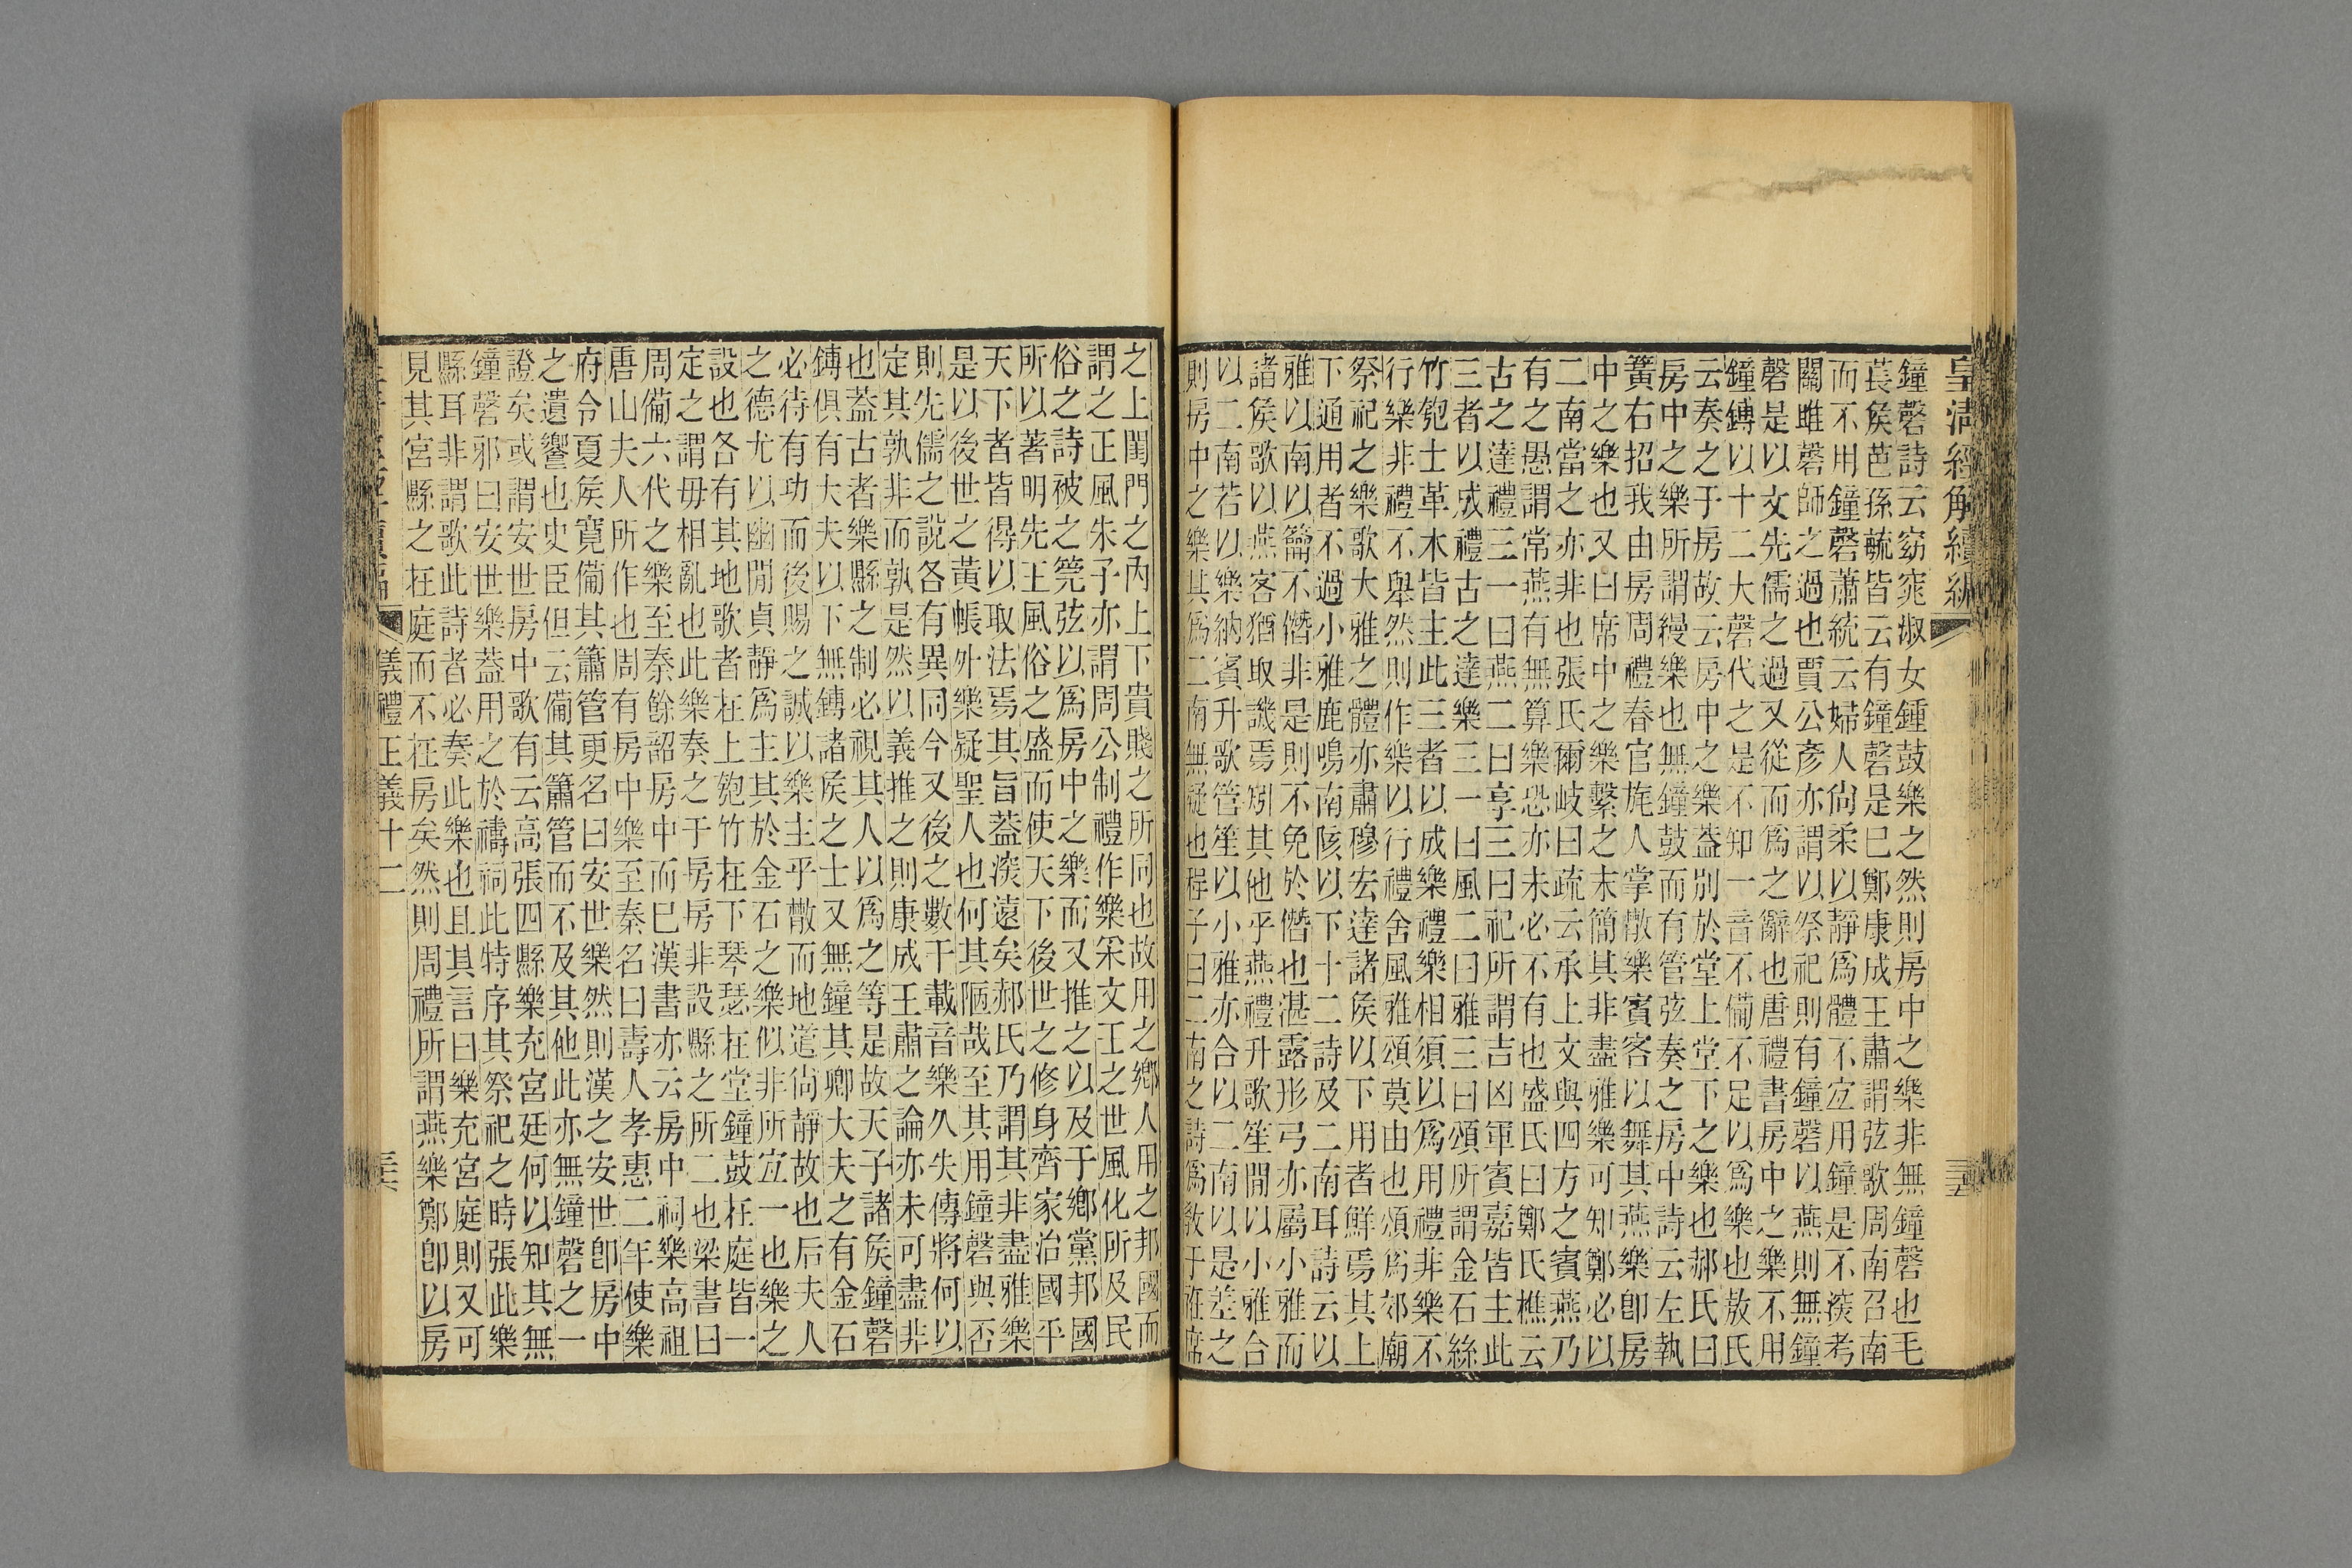 皇清經解續編
鐘磬詩云窈窕淑女鍾鼓樂之然則房中之樂非無鐘磬也毛
萇矦芭孫毓皆云有鐘磬是巳鄭康成王肅謂弦歌周南召南
而不用鐘磬蕭統云婦人尙柔以靜爲體不宐用鐘是不㴱考
關雎磬師之過也賈公彥亦謂以祭祀則有鐘磬以燕則無鐘
磬是以文先儒之過又從而爲之辭也唐禮書房中之樂不用
鐘鎛以十二大磬代之是不知一音不僃不足以爲樂也敖氏
云奏之于房故云房中之樂葢別於堂上堂下之樂也郝氏曰
房中之樂所謂縵樂也無鐘鼓而有管弦奏之房中詩云左執
簧右招我由房周禮春官旄人掌㪚樂賓客以舞其燕樂卽房
中之樂也又曰席中之樂繫之末簡其非盡雅樂可知鄭必以
二南當之亦非也張氏爾岐曰疏云承上文與四方之賓燕乃
有之愚謂常燕有無算樂恐亦未必不有也盛氏曰鄭氏樵云
古之達禮三一曰燕二曰享三曰祀所謂吉凶軍賓嘉皆主此
三者以成禮古之達樂三一曰風二曰雅三曰頌所謂金石絲
竹匏土革木皆主此三者以成樂禮樂相須以爲用禮非樂不
行樂非禮不舉然則作樂以行禮舍風雅頌莫由也頌爲郊廟
祭祀之樂歌大雅之體亦肅穆宏達諸矦以下用者鮮焉其上
下通用者不過小雅鹿鳴南陔以下十二詩及二南耳詩云以
雅以南以籥不僭非是則不免於僭也湛露彤弓亦屬小雅而
諸矦歌以燕客猶取譏焉矧其他乎燕禮升歌笙閒以小雅合
以二南若以樂納賓升歌管笙以小雅亦合以二南以是差之
則房中之樂其爲二南無疑也程子曰二南之詩爲敎于衽席
之上閨門之內上下貴賤之所同也故用之鄉人用之邦國而
謂之正風朱子亦謂周公制禮作樂采文王之世風化所及民
俗之詩被之筦弦以爲房中之樂而又推之以及于鄉黨邦國
所以著明先王風俗之盛而使天下後世之修身齊家治國平
天下者皆得以取法焉其旨葢㴱遠矣郝氏乃謂其非盡雅樂
是以後世之黃帳外樂疑聖人也何其陋哉至其用鐘磬與否
則先儒之說各有異同今又後之數千載音樂久失傳將何以
定其孰非而孰是然以義推之則康成王肅之論亦未可盡非
也葢古者樂縣之制必視其人以爲之等是故天子諸矦鐘磬
鎛俱有大夫以下無鎛諸矦之士又無鐘其卿大夫之有金石
必待有功而後賜之誠以樂主乎㪚而地道尙靜故也后夫人
之德尤以幽閒貞靜爲主其於金石之樂似非所宐一也樂之
設也各有其地歌者在上匏竹在下琴瑟在堂鐘鼓在庭皆一
定之謂毋相亂也此樂奏之于房房非設縣之所二也梁書曰
周僃六代之樂至秦餘韶房中而巳漢書亦云房中祠樂高祖
唐山夫人所作也周有房中樂至秦名曰壽人孝惠二年使樂
府令夏矦寬僃其簫管更名曰安世樂然則漢之安世卽房中
之遺響也史臣但云僃其簫管而不及其他此亦無鐘磬之一
證矣或謂安世房中歌有云高張四縣樂充宮廷何以知其無
鐘磬邪曰安世樂葢用之於禱祠此特序其祭祀之時張此樂
縣耳非謂歌此詩者必奏此樂也且其言曰樂充宮庭則又可
見其宮縣之在庭而不在房矣然則周禮所謂燕樂鄭卽以房
儀禮正義十二